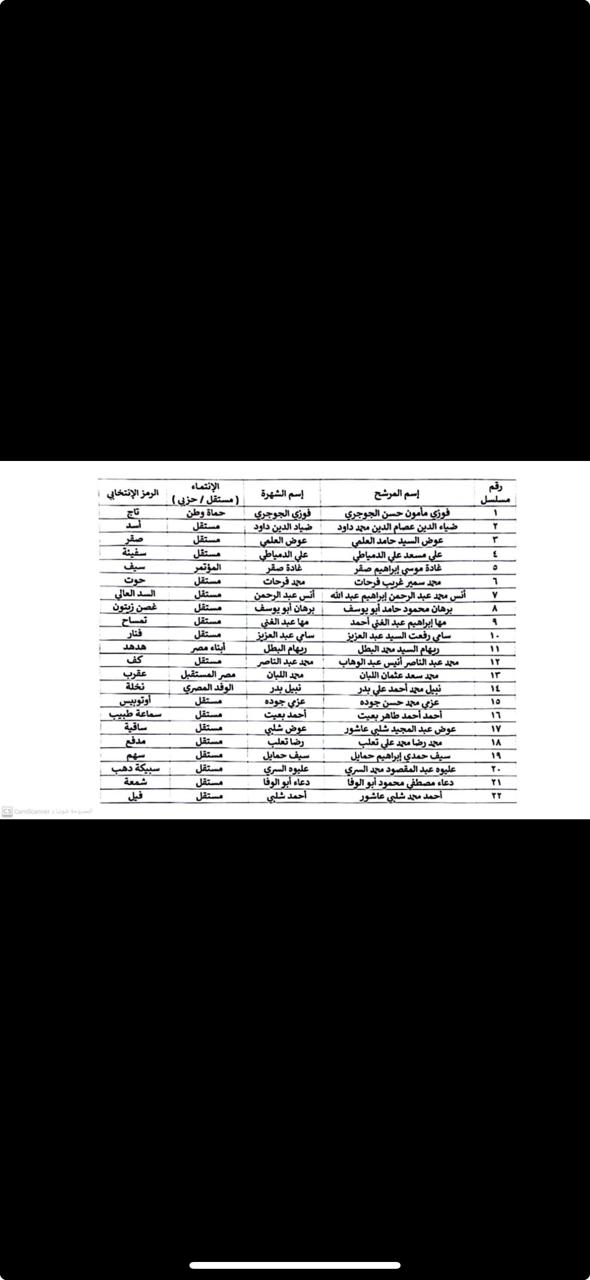 رقم مسلسل إسم المرشح إسم الشهرة الإنتماء ( مستقل / حزبى ) الرمز الإنتخابي
١ فوزي مأمون حسن الجوجري فوزي الجوجري حماة وطن تاج
٢ ضياء الدين عصام الدين محمد داود ضياء الدين داود مستقل أسد
٣ عوض السيد حامد العلمي عوض العلمي مستقل صقر
٤ علي مسعد علي الدمياطي علي الدمياطي مستقل سفينة
٥ غادة موسى إبراهيم صقر غادة صقر المؤتمر سيف
٦ محمد سمير غريب فرحات محمد فرحات مستقل حوت
٧ أنس محمد عبد الرحمن إبراهيم عبد الله أنس عبد الرحمن مستقل السد العالي
٨ برهان محمود حامد أبو يوسف برهان أبو يوسف مستقل غصن زيتون
٩ مها إبراهيم عبد الغني أحمد مها عبد الغني مستقل تمساح
١٠ سامي رفعت السيد عبد العزيز سامي عبد العزيز مستقل فنار
١١ ريهام السيد محمد البطل ريهام البطل أبناء مصر هدهد
١٢ محمد عبد الناصر أنيس عبد الوهاب محمد عبد الناصر مستقل كف
١٣ محمد سعد عثمان اللبان محمد اللبان مصر المستقبل عقرب
١٤ نبيل محمد أحمد علي بدر نبيل بدر الوفد المصري نخلة
١٥ عزمي محمد حسن جوده عزمي جوده مستقل أوتوبيس
١٦ أحمد أحمد طاهر بعيت أحمد بعيت مستقل سماعة طبيب
١٧ عوض عبد المجيد شلبي عاشور عوض شلبي مستقل ساقية
١٨ محمد رضا محمد علي تعلب رضا تعلب مستقل مدفع
١٩ سيف حمدي إبراهيم حمايل سيف حمايل مستقل سهم
٢٠ عليوه عبد المقصود محمد السري عليوه السري مستقل سبيكة دهب
٢١ دعاء مصطفي محمود أبو الوفا دعاء أبو الوفا مستقل شمعة
٢٢ أحمد محمد شلبي عاشور أحمد شلبي مستقل فيل
CS CamScanner الممسوحة ضوئيا بـ